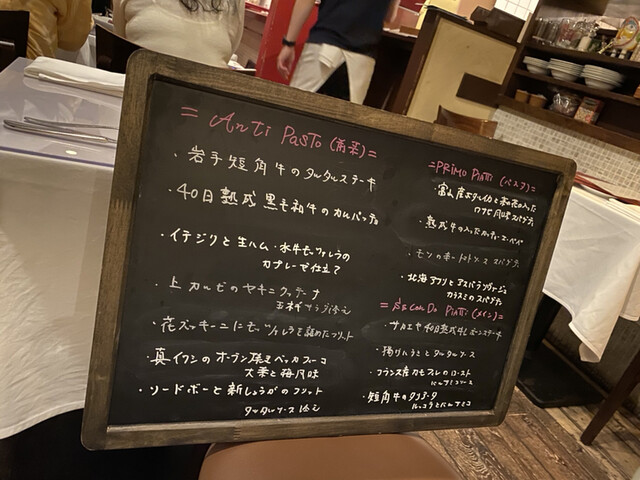 = Anti Pasto (前菜) =
・岩手短角牛のタルタルステーキ
・40日熟成黒毛和牛のカルパッチョ
・イチジクと生ハム・水牛モッツァレラの
カプレーゼ仕立て
・上カルビのヤキニクッチーナ
玉ネギサラダ添え
・花ズッキーニにモッツァレラを詰めたフリット
・真イワシのオーブン焼きベッカフィーコ
大葉と梅風味
・ソードボーと新しょうがのフリット
タルタルソース添え
= PRIMO PIATTI (パスタ) =
・富山産ホタルイカと菜の花の入った
スパゲティ
・熟成牛の入った
・モツの トマトソース スパゲティ
・北海アサリとアスパラソヴァージュ
カラスミのスパゲティ
= SECONDO PIATTI (メイン) =
・サカエヤ40日熟成牛 ボンステーキ
タルタルソース
・フランス産カモフレのロースト
バルサミコソース
・短角牛のタリアータ
ルッコラとバルサミコ